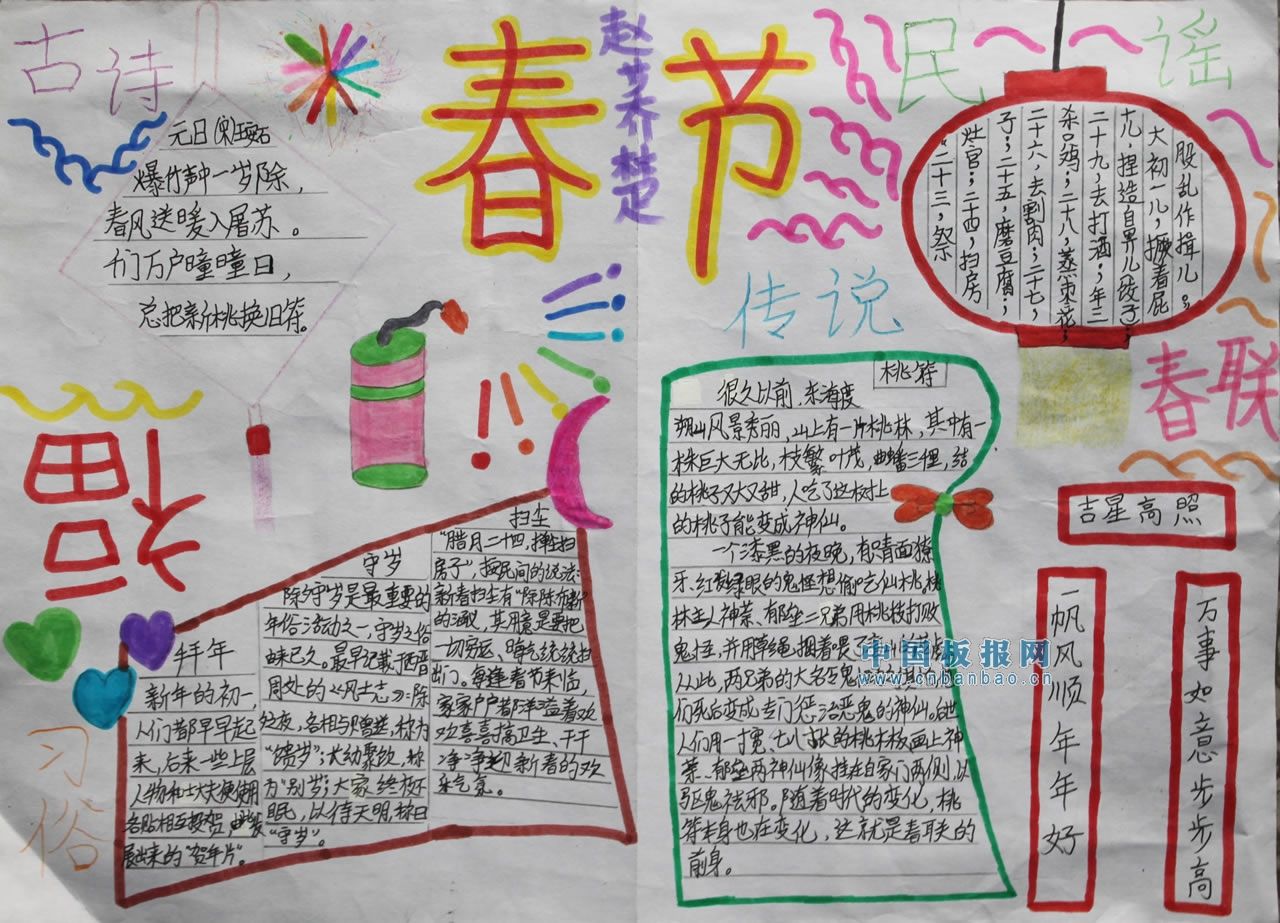 古诗
元日(宋)王安石
爆竹声中一岁除,
春风送暖入屠苏。
千门万户曈曈日,
总把新桃换旧符。
春节
赵艺楚
民谣
二十三,祭
灶官;二十四,扫房
子;二十五,磨豆腐;
二十六,去割肉;二十七,
杀只鸡;二十八,蒸枣花;
二十九,去打酒;年三
十儿,捏造自畀儿饺子
大初一儿,撅着屁
股乱作揖儿。
福
习俗
拜年
新年的初一,
人们都早早起
来,后来一些上层
人物和士大夫便用
名贴相互投贺,由此发
展出来的“贺年片”。
守岁
除夕守岁是最重要的
年俗活动之一,守岁之俗
由来已久。最早记载于西晋
周处的《风土志》:除
夕之夜,各相与赠送,称为
“馈岁”;大幼聚饮,称
为“别岁”;大家终夜不
眠,以待天明,称曰
“守岁”。
扫尘
“腊月二十四,掸尘扫
房子”,据民间的说法:
新春扫尘有“除陈布新”
的涵义,其用意是要把
一切穷运、晦气统统扫
出门。每逢春节来临,
家家户户都洋溢着欢
欢喜喜搞卫生、干干
净净迎新春的欢
乐气氛。
传说
桃符
很久以前,东海度
朔山风景秀丽,山上有一片桃林,其中有一
株巨大无比,枝繁叶茂,曲蟠三里,结
的桃子又大又甜,人吃了这树上
的桃子能变成神仙。
一个漆黑的夜晚,有只青面獠
牙、红发绿眼的鬼怪想偷吃仙桃。桃
林主人神荼、郁垒二兄弟用桃枝打败
鬼怪,并用草绳捆着喂了
从此,两兄弟的大名
们死后变成专门惩治恶鬼的神仙。后世
人们用一寸宽、七八寸长的桃木板画上神
荼、郁垒两神仙像挂在自家门两侧,以
驱鬼祛邪。随着时代的变化,桃
符本身也在变化,这就是春联的
前身。
中国板报网
www.cnbanbao.cn
春联
吉星高照
一帆风顺年年好
万事如意步步高